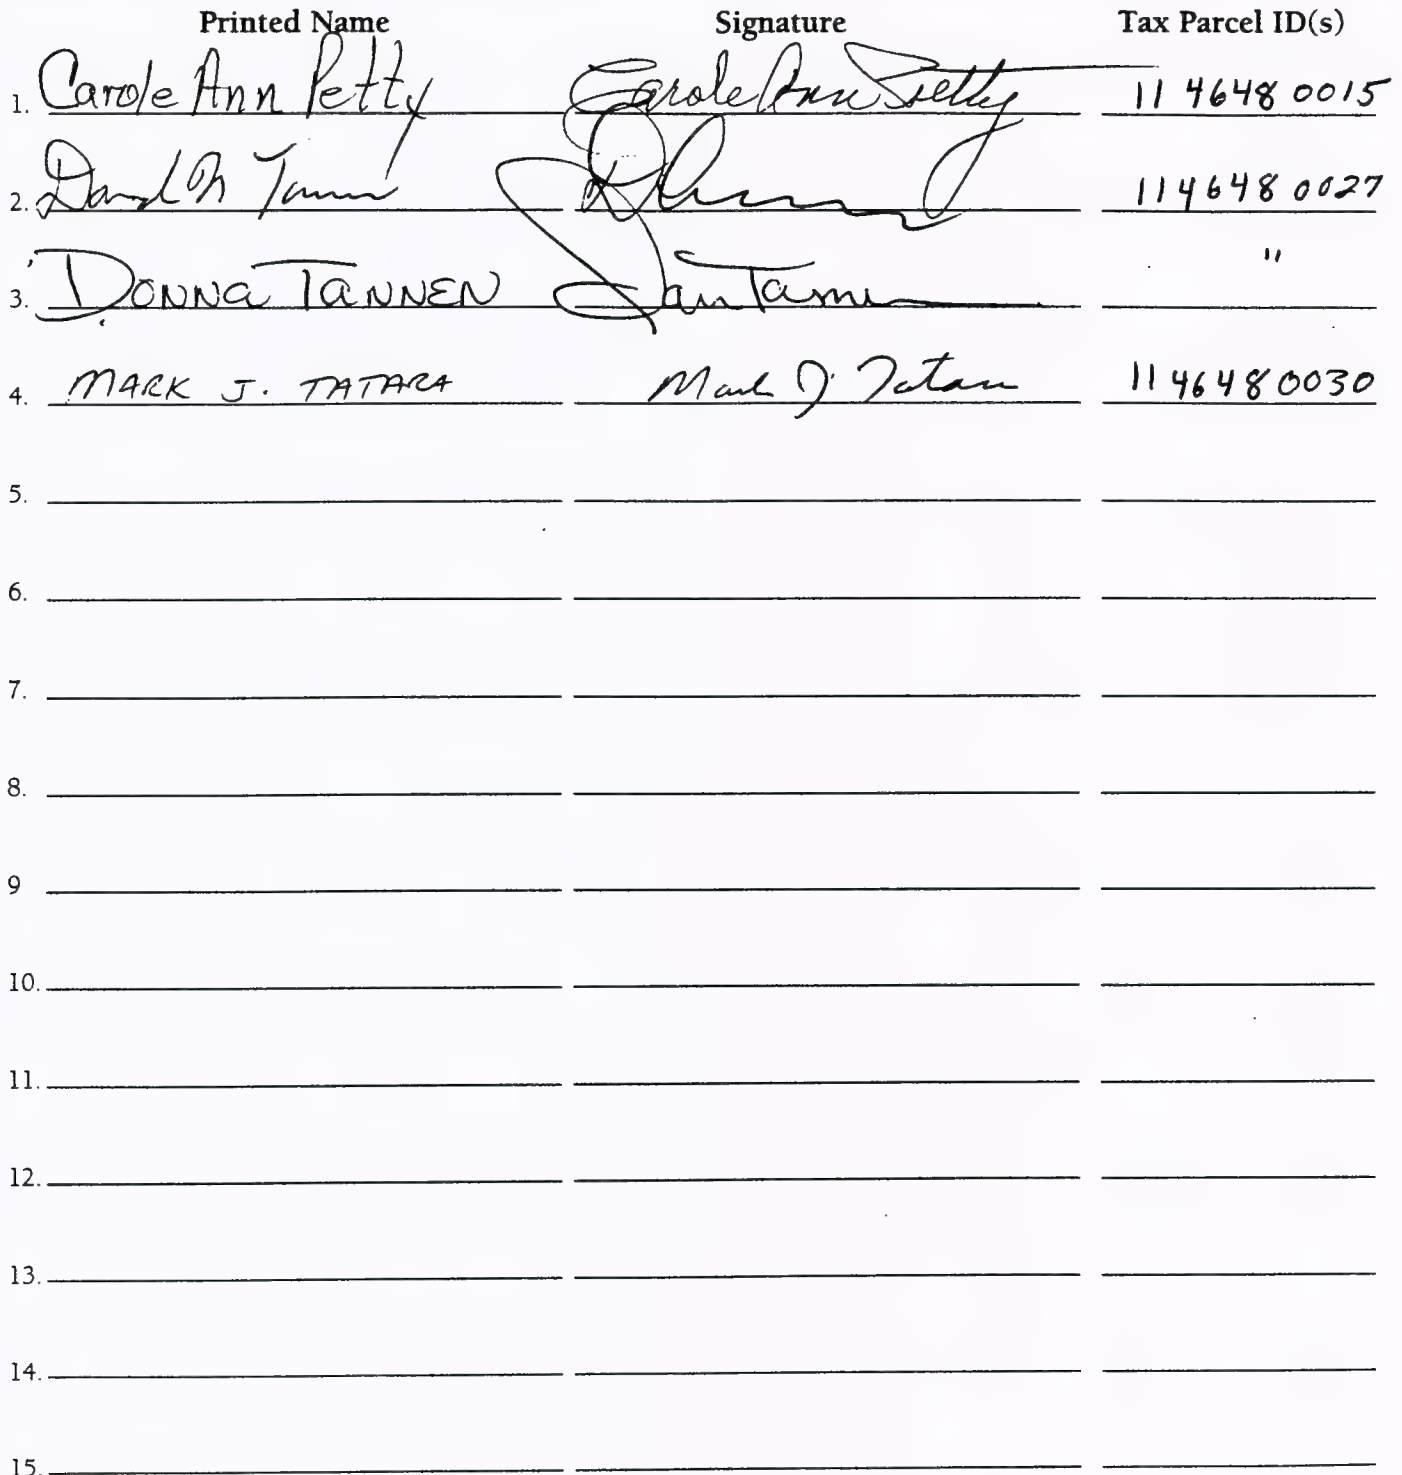 Printed Name Signature Tax Parcel ID(s)
1. Carole Ann Petty Carole Ann Petty 11 4648 0015
2. David M 114648 0027
3. DONNA TANNEN "
4. MARK J. TATARA Mark J. Tatara 11 4648 0030
5.
6.
7.
8.
9
10.
11.
12.
13.
14.
15.